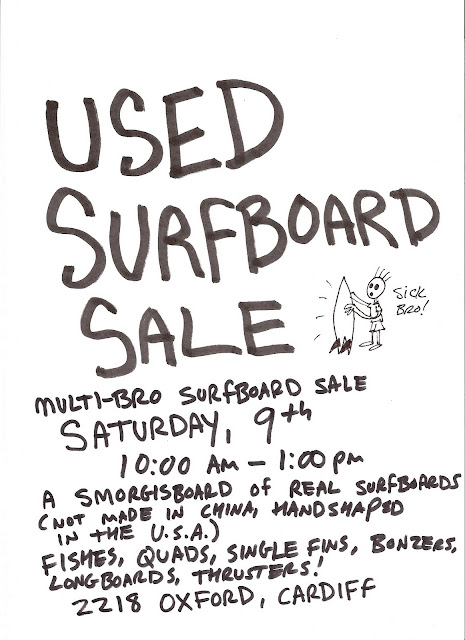 USED
SURFBOARD
SALE
SICK
BRO!
MULTI-BRO SURFBOARD SALE
SATURDAY, 9th
10:00 AM - 1:00 PM
A SMORGISBOARD OF REAL SURFBOARDS
(NOT MADE IN CHINA, HANDSHAPED
IN THE U.S.A.)
FISHES, QUADS, SINGLE FINS, BONZERS,
LONGBOARDS, THRUSTERS!
2218 OXFORD, CARDIFF